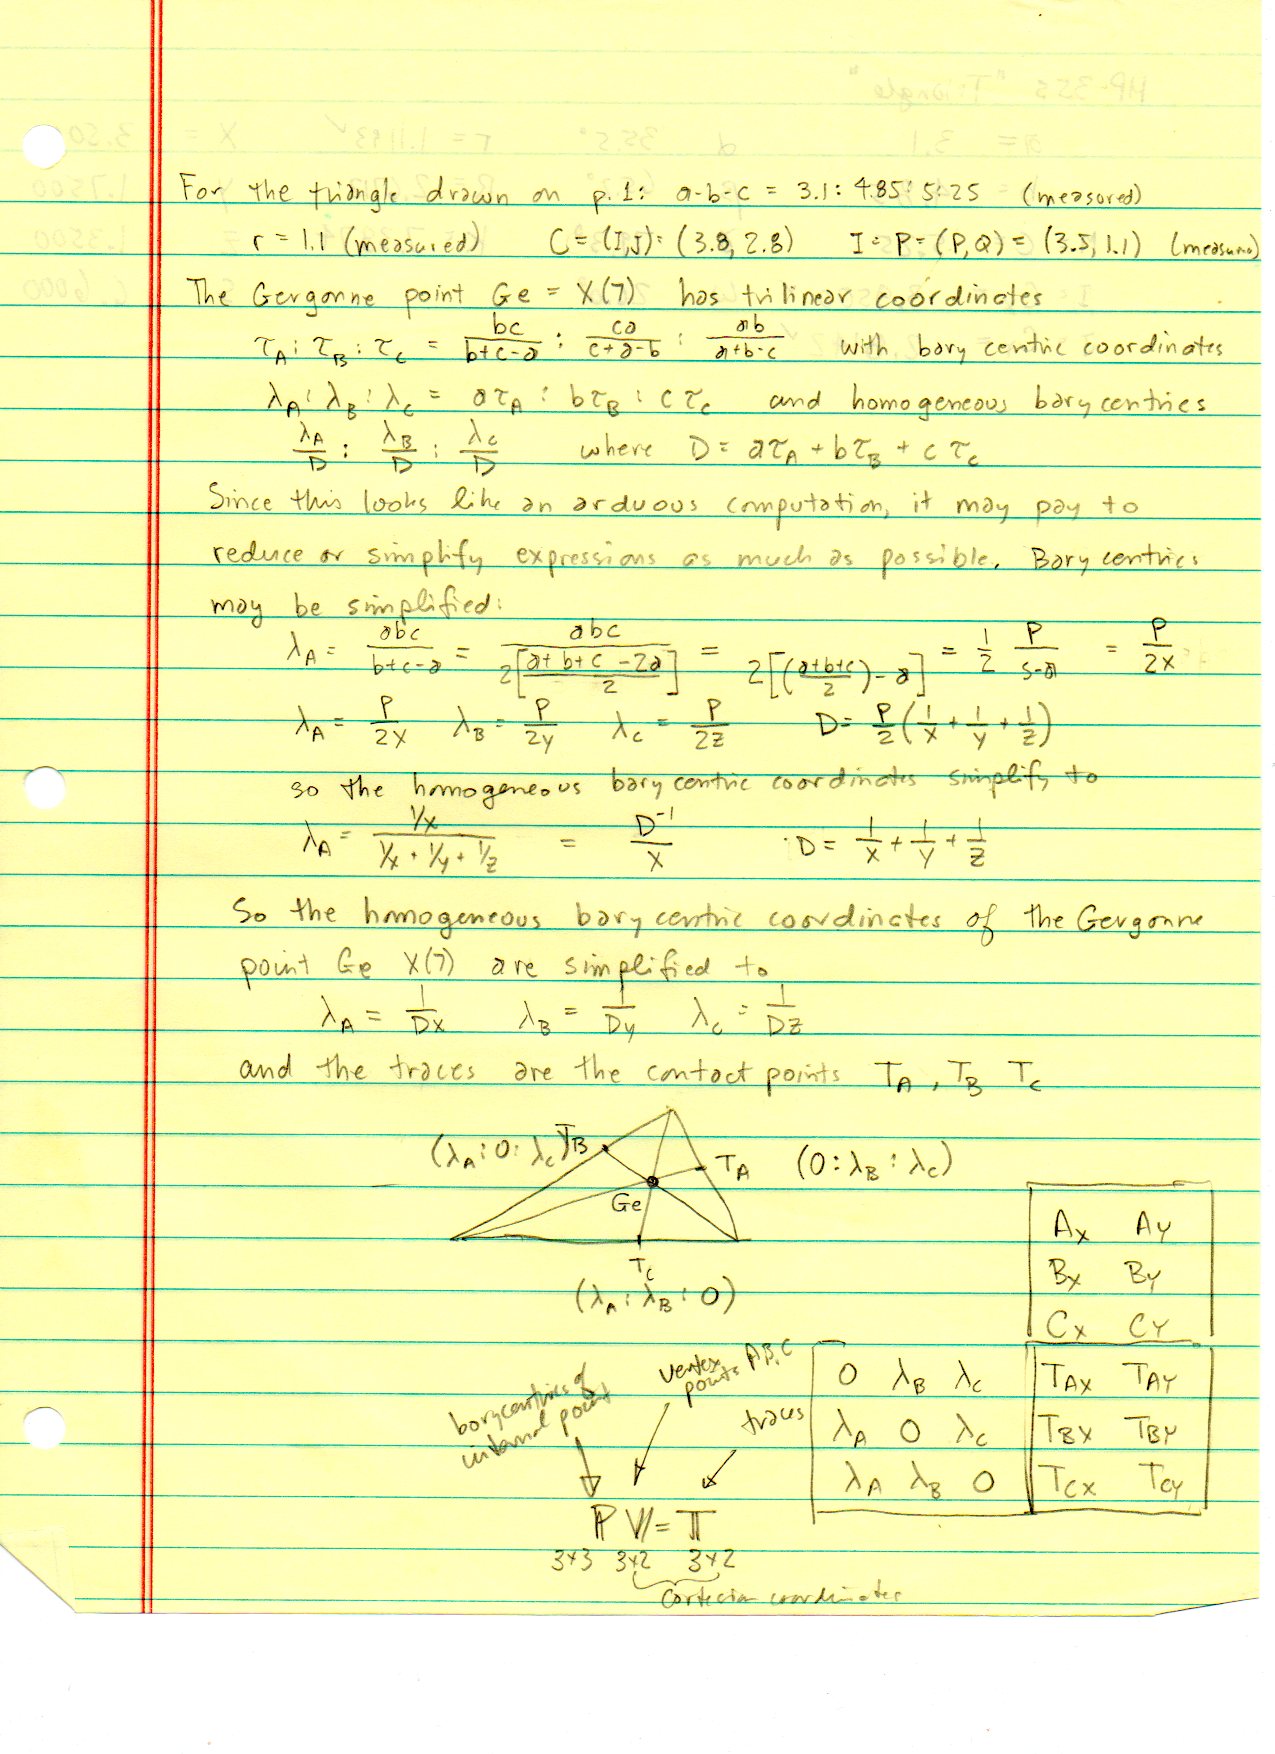 For the triangle drawn on p. 1: a-b-c = 3.1 : 4.85 : 5.25 (measured)
r = 1.1 (measured) C = (I,J) = (3.8, 2.8) I = P = (P,Q) = (3.5, 1.1) (measured)
The Gergonne point Ge = X(7) has trilinear coordinates
τ_A : τ_B : τ_C = bc/(b+c-a) : ca/(c+a-b) : ab/(a+b-c) with barycentric coordinates
λ_A : λ_B : λ_C = aτ_A : bτ_B : cτ_C and homogeneous barycentrics
λ_A/D : λ_B/D : λ_C/D where D = aτ_A + bτ_B + cτ_C
Since this looks like an arduous computation, it may pay to
reduce or simplify expressions as much as possible. Barycentrics
may be simplified:
λ_A = abc/(b+c-a) = abc/(2[(a+b+c-2a)/2]) = /(2[((a+b+c)/2)-a]) = 1/2 P/(s-a) = P/2x
λ_A = P/2x λ_B = P/2y λ_C = P/2z D = P/2 (1/x + 1/y + 1/z)
so the homogeneous barycentric coordinates simplify to
λ_A = (1/x)/(1/x + 1/y + 1/z) = D^-1/x D = 1/x + 1/y + 1/z
So the homogeneous barycentric coordinates of the Gergonne
point Ge X(7) are simplified to
λ_A = 1/Dx λ_B = 1/Dy λ_C = 1/Dz
and the traces are the contact points T_A, T_B T_C
(λ_A : 0 : λ_C) T_B T_A (0 : λ_B : λ_C)
Ge
T_C
(λ_A : λ_B : 0)
Ax Ay
Bx By
Cx Cy
0 λ_B λ_C TAx TAy
λ_A 0 λ_C TBx TBy
λ_A λ_B 0 TCx TCy
barycentrics of
internal point
vertex
points A,B,C
traces
P V = T
3x3 3x2 3x2
Cartesian coordinates